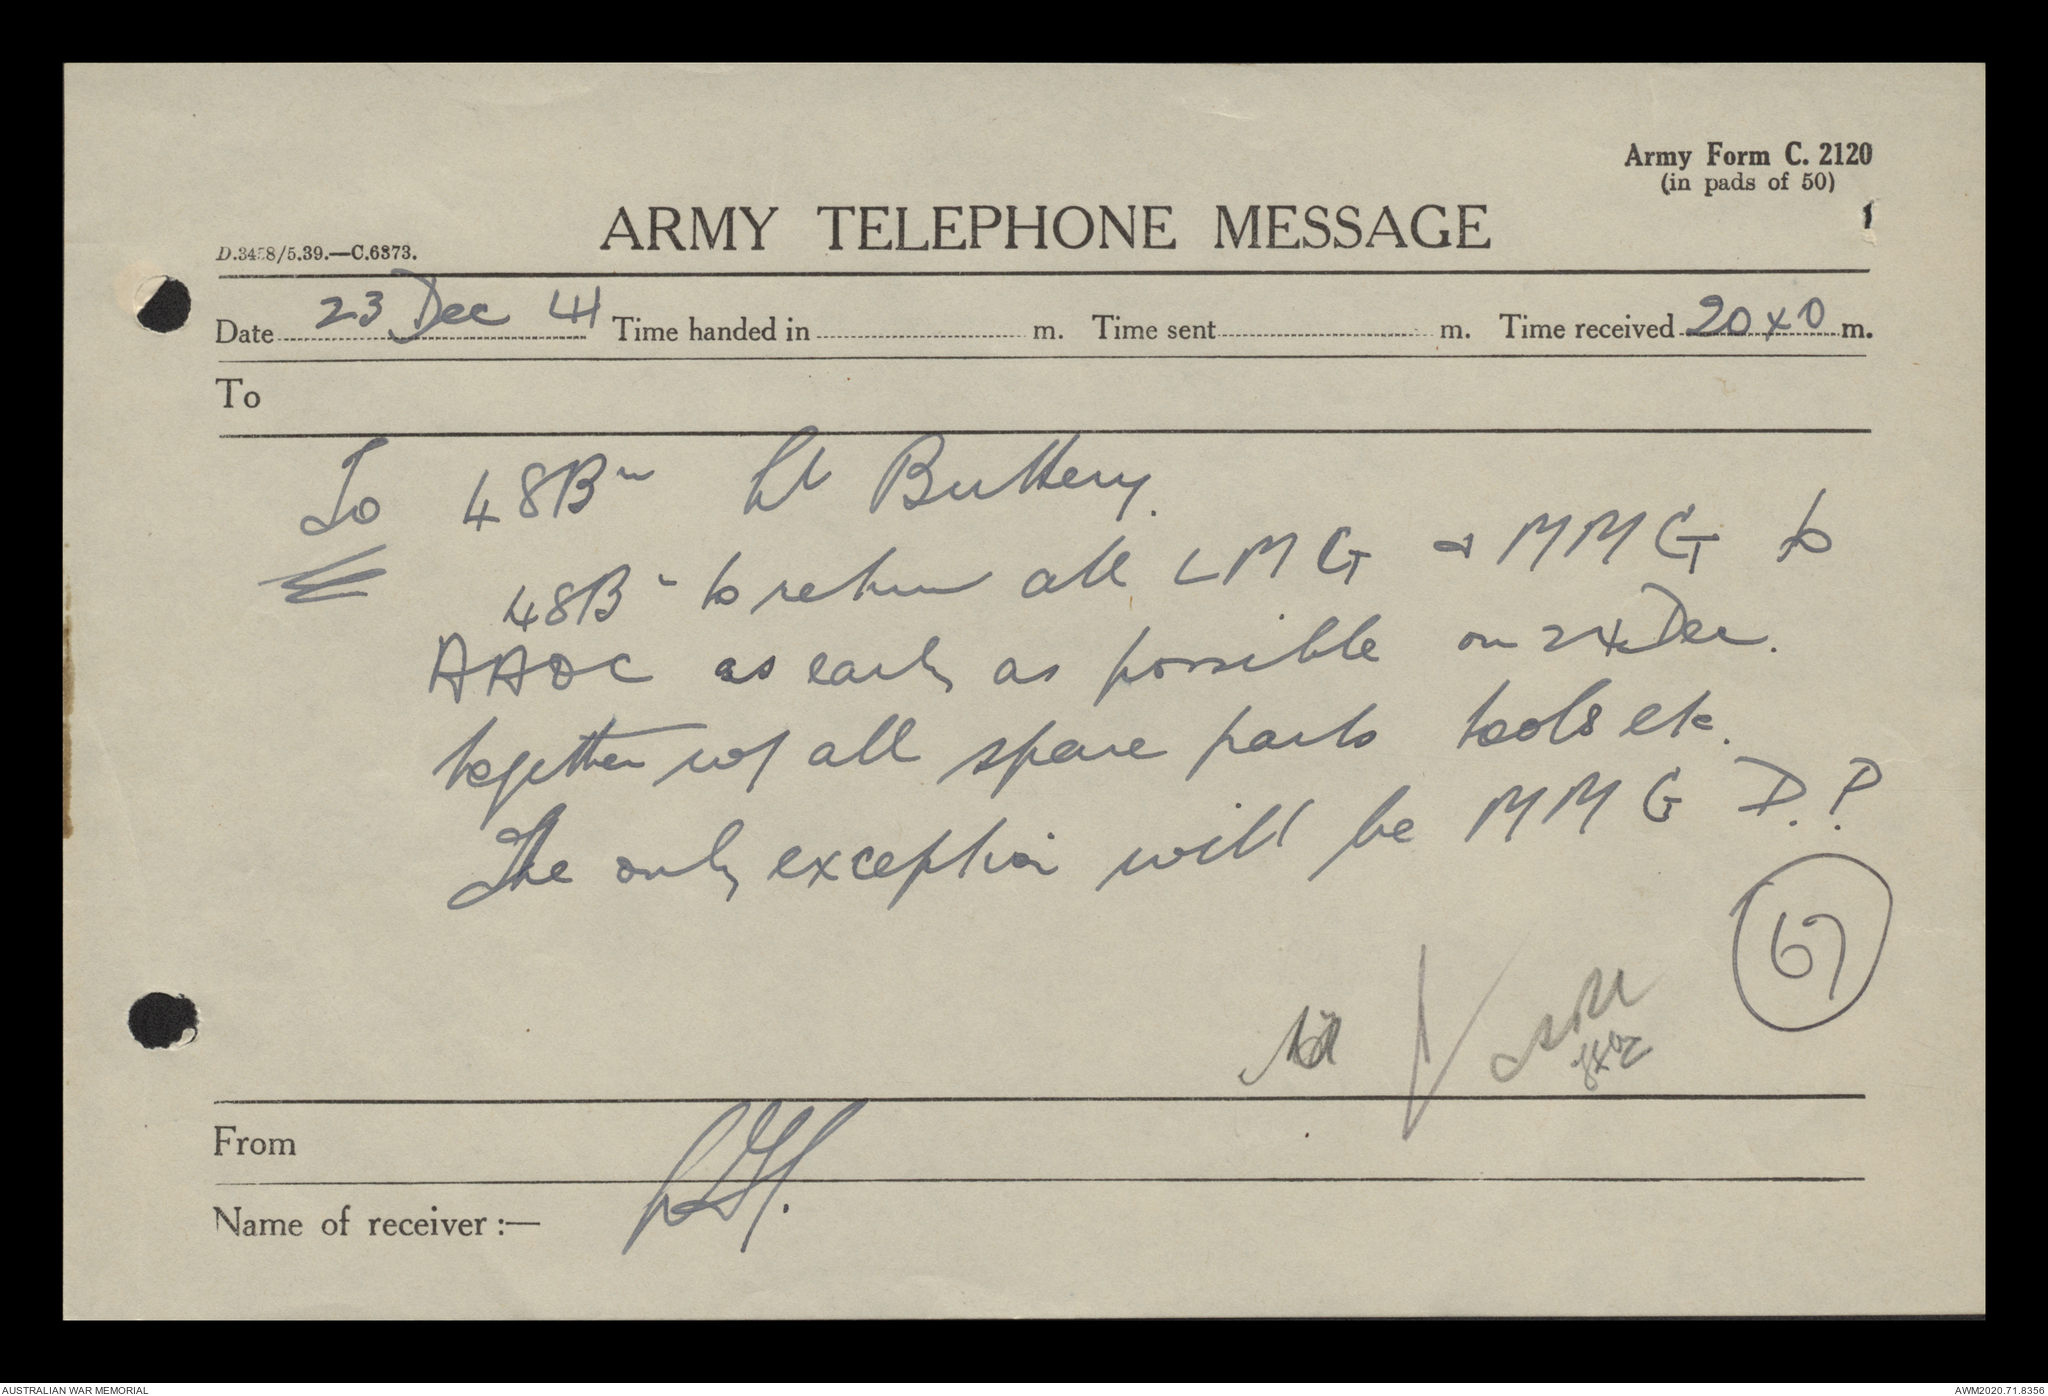 Army Form C. 2120
(in pads of 50)
1
ARMY TELEPHONE MESSAGE
D.3458/5.39.—C.6873.
Date 23 Dec 41 Time handed in m. Time sent m. Time received 20x0 m.
To
To 48Bn Lt Buttery.
48Bn to return all LMG & MMG to
AAOC as early as possible on 24 Dec.
together w/ all spare parts tools etc.
The only exception will be MMG D.P.
67
From
Name of receiver :—
AUSTRALIAN WAR MEMORIAL
AWM2020.71.8356